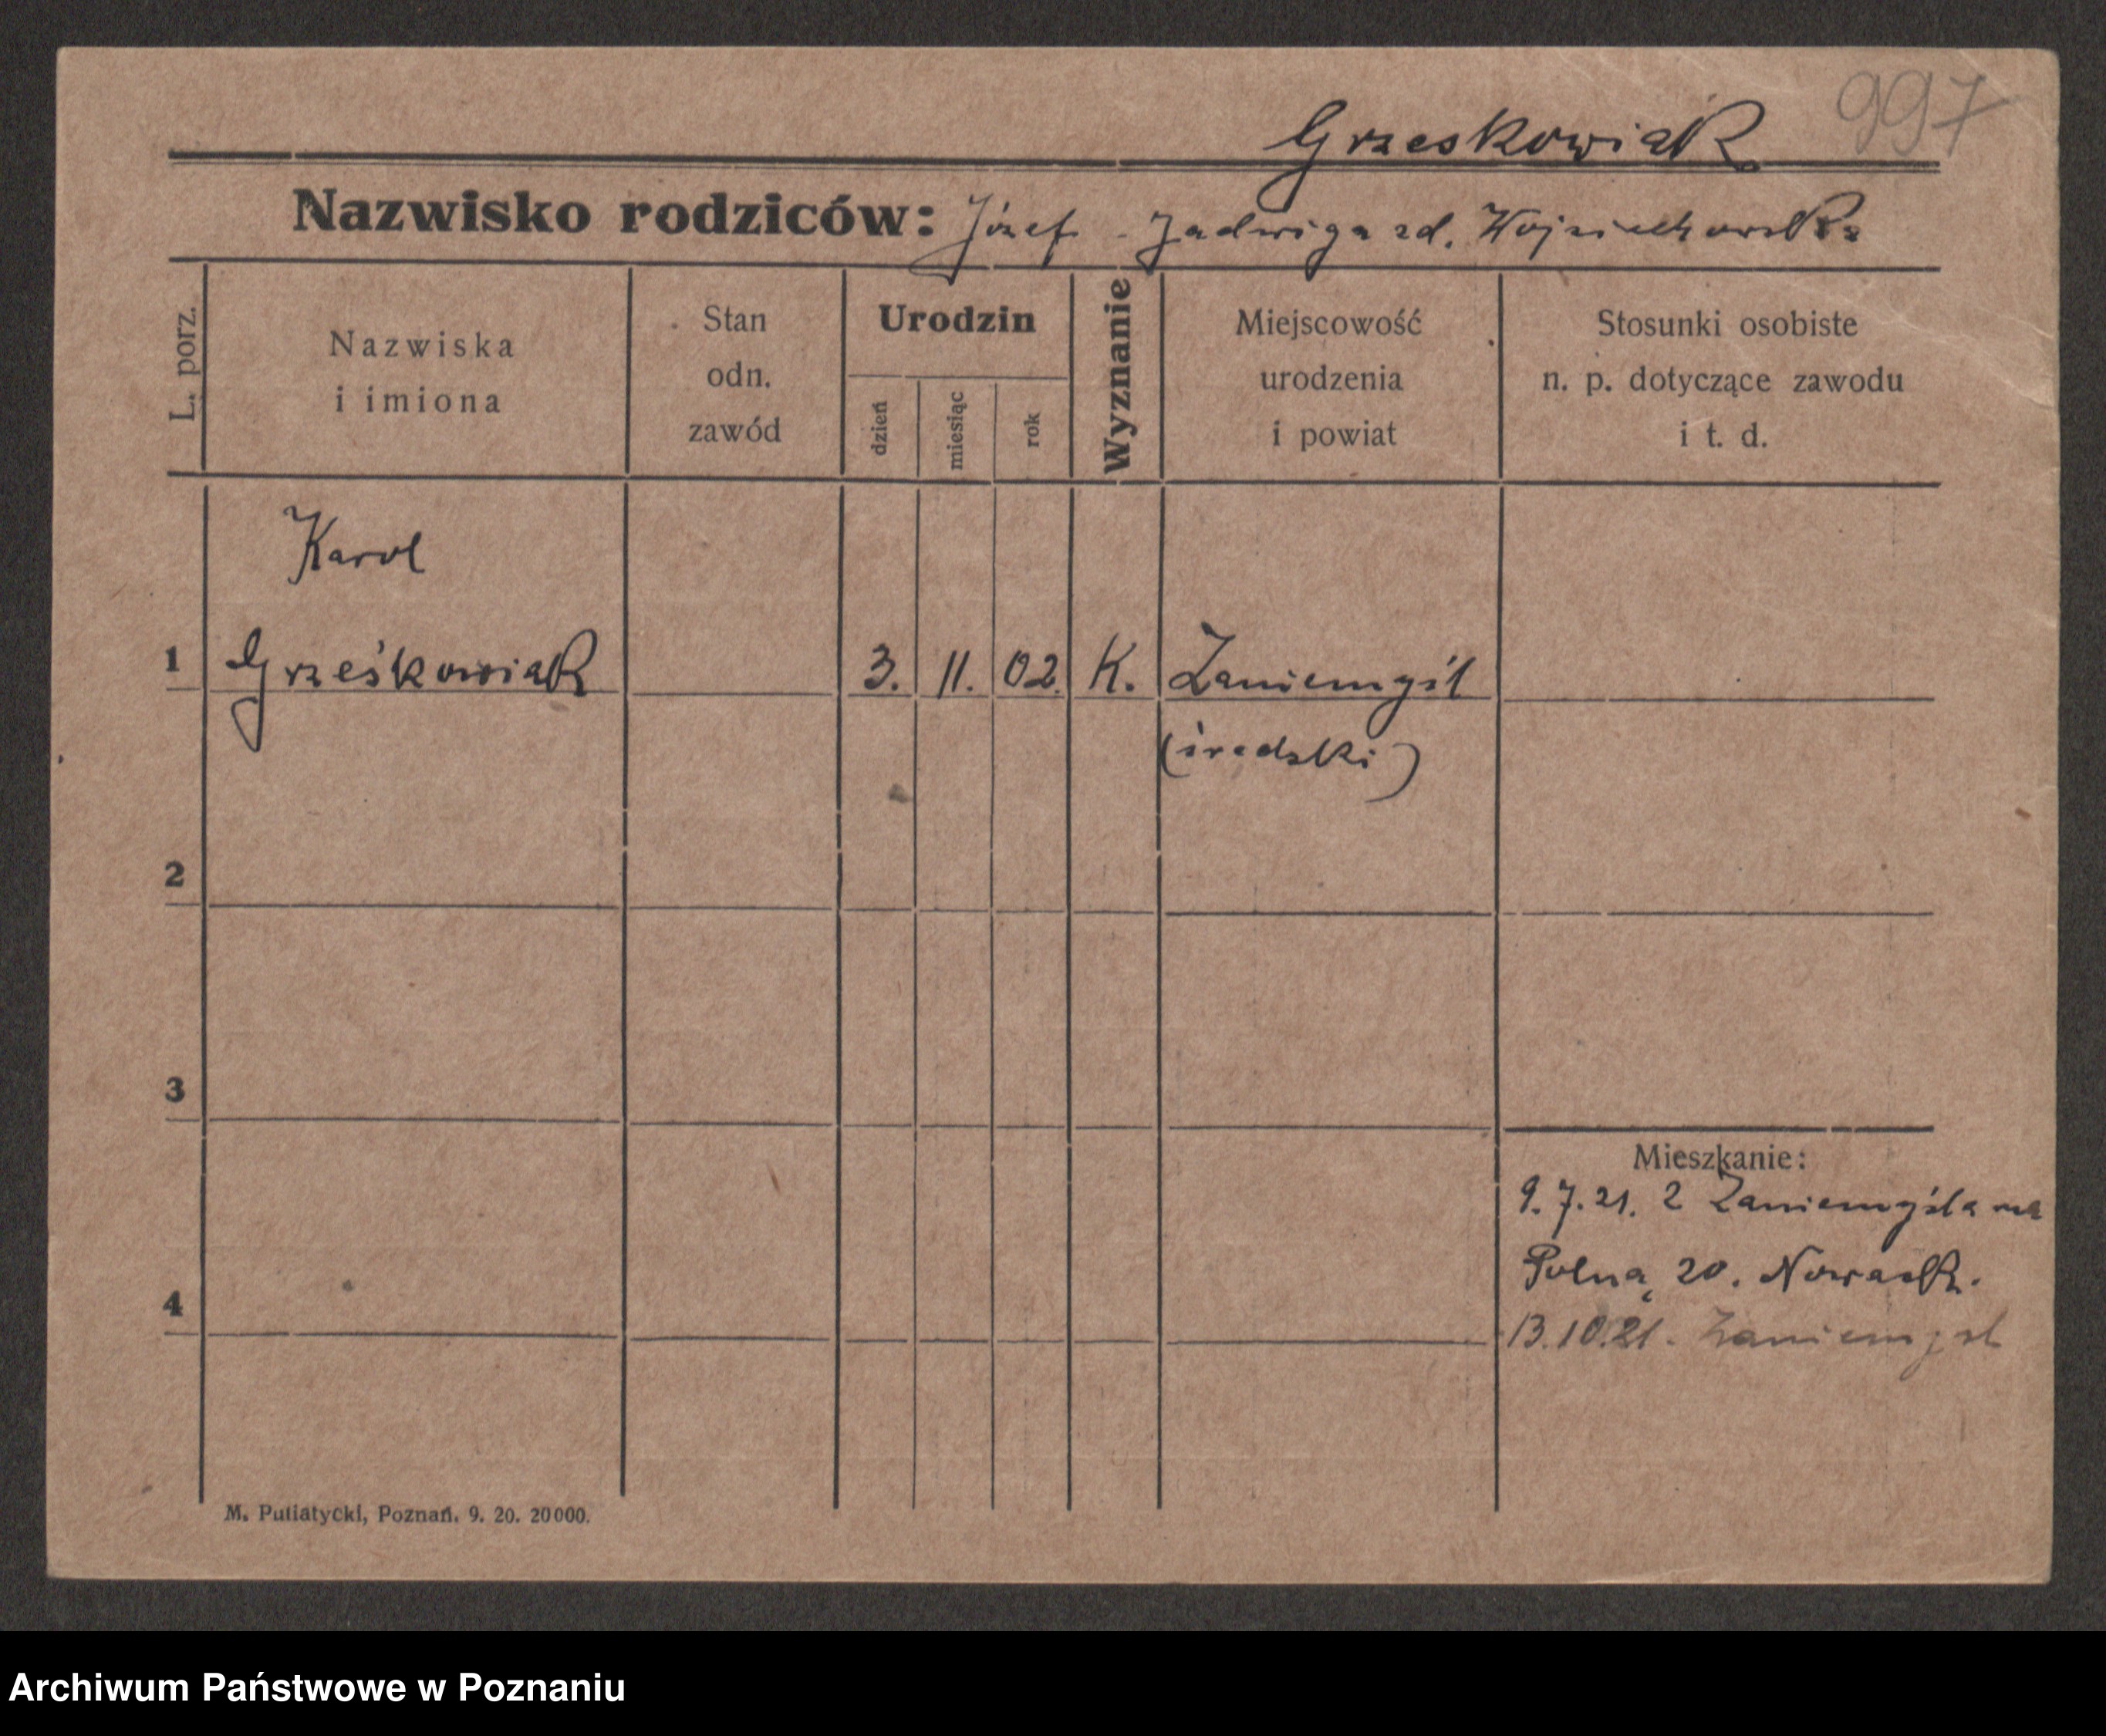 997
Grzeskowiak
Nazwisko rodziców: Józef - Jadwiga zd. Wojciechowska
L. porz.
Nazwiska
i imiona
Stan
odn.
zawód
Urodzin
dzień
miesiąc
rok
Wyznanie
Miejscowość
urodzenia
i powiat
Stosunki osobiste
n. p. dotyczące zawodu
i t. d.
Karol
1 Grześkowiak 3. 11. 02. K. Zaniemyśl
(średzki)
2
3
Mieszkanie:
9.7.21. z Zaniemyśla na
Polną 20. Nowack.
4
13.10.21. Zaniemysl
M. Putiatycki, Poznań. 9. 20. 20000.
Archiwum Państwowe w Poznaniu